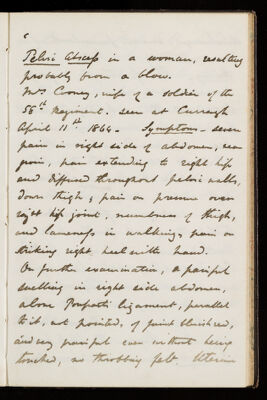 6
Pelvic Abscess in a woman, resulting
probably from a blow.
Mrs Cooney, wife of a soldier of the
56th Regiment. seen at Curragh
April 11th 1864. Symptoms - severe
pain in right side of abdomen, near
groin, pain extending to right hip
and diffused throughout pelvic walls,
down thigh; pain on pressure over
right hip joint, numbness of thigh,
and lameness in walking, pain on
striking right heel with hand.
On further examination, a painful
swelling in right side abdomen,
above Pouparts ligament, parallel
to it, not pointed, of faint bluish red,
and very painful even without being
touched, no throbbing felt. Uterine